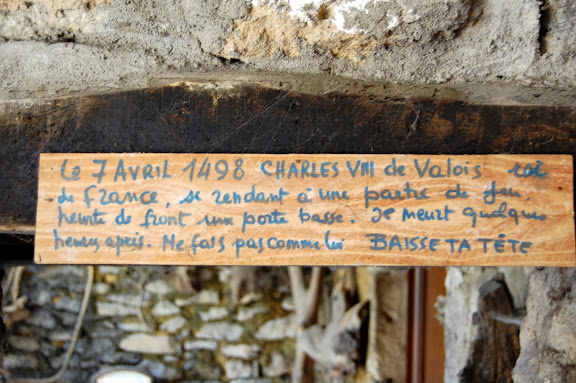 Le 7 AVRIL 1498 CHARLES VIII de Valois roi
de France, se rendant à une partie de jeu
heurte de front une porte basse. Je meurt quelques
heures après. Ne fais pas comme lui BAISSE TA TÊTE